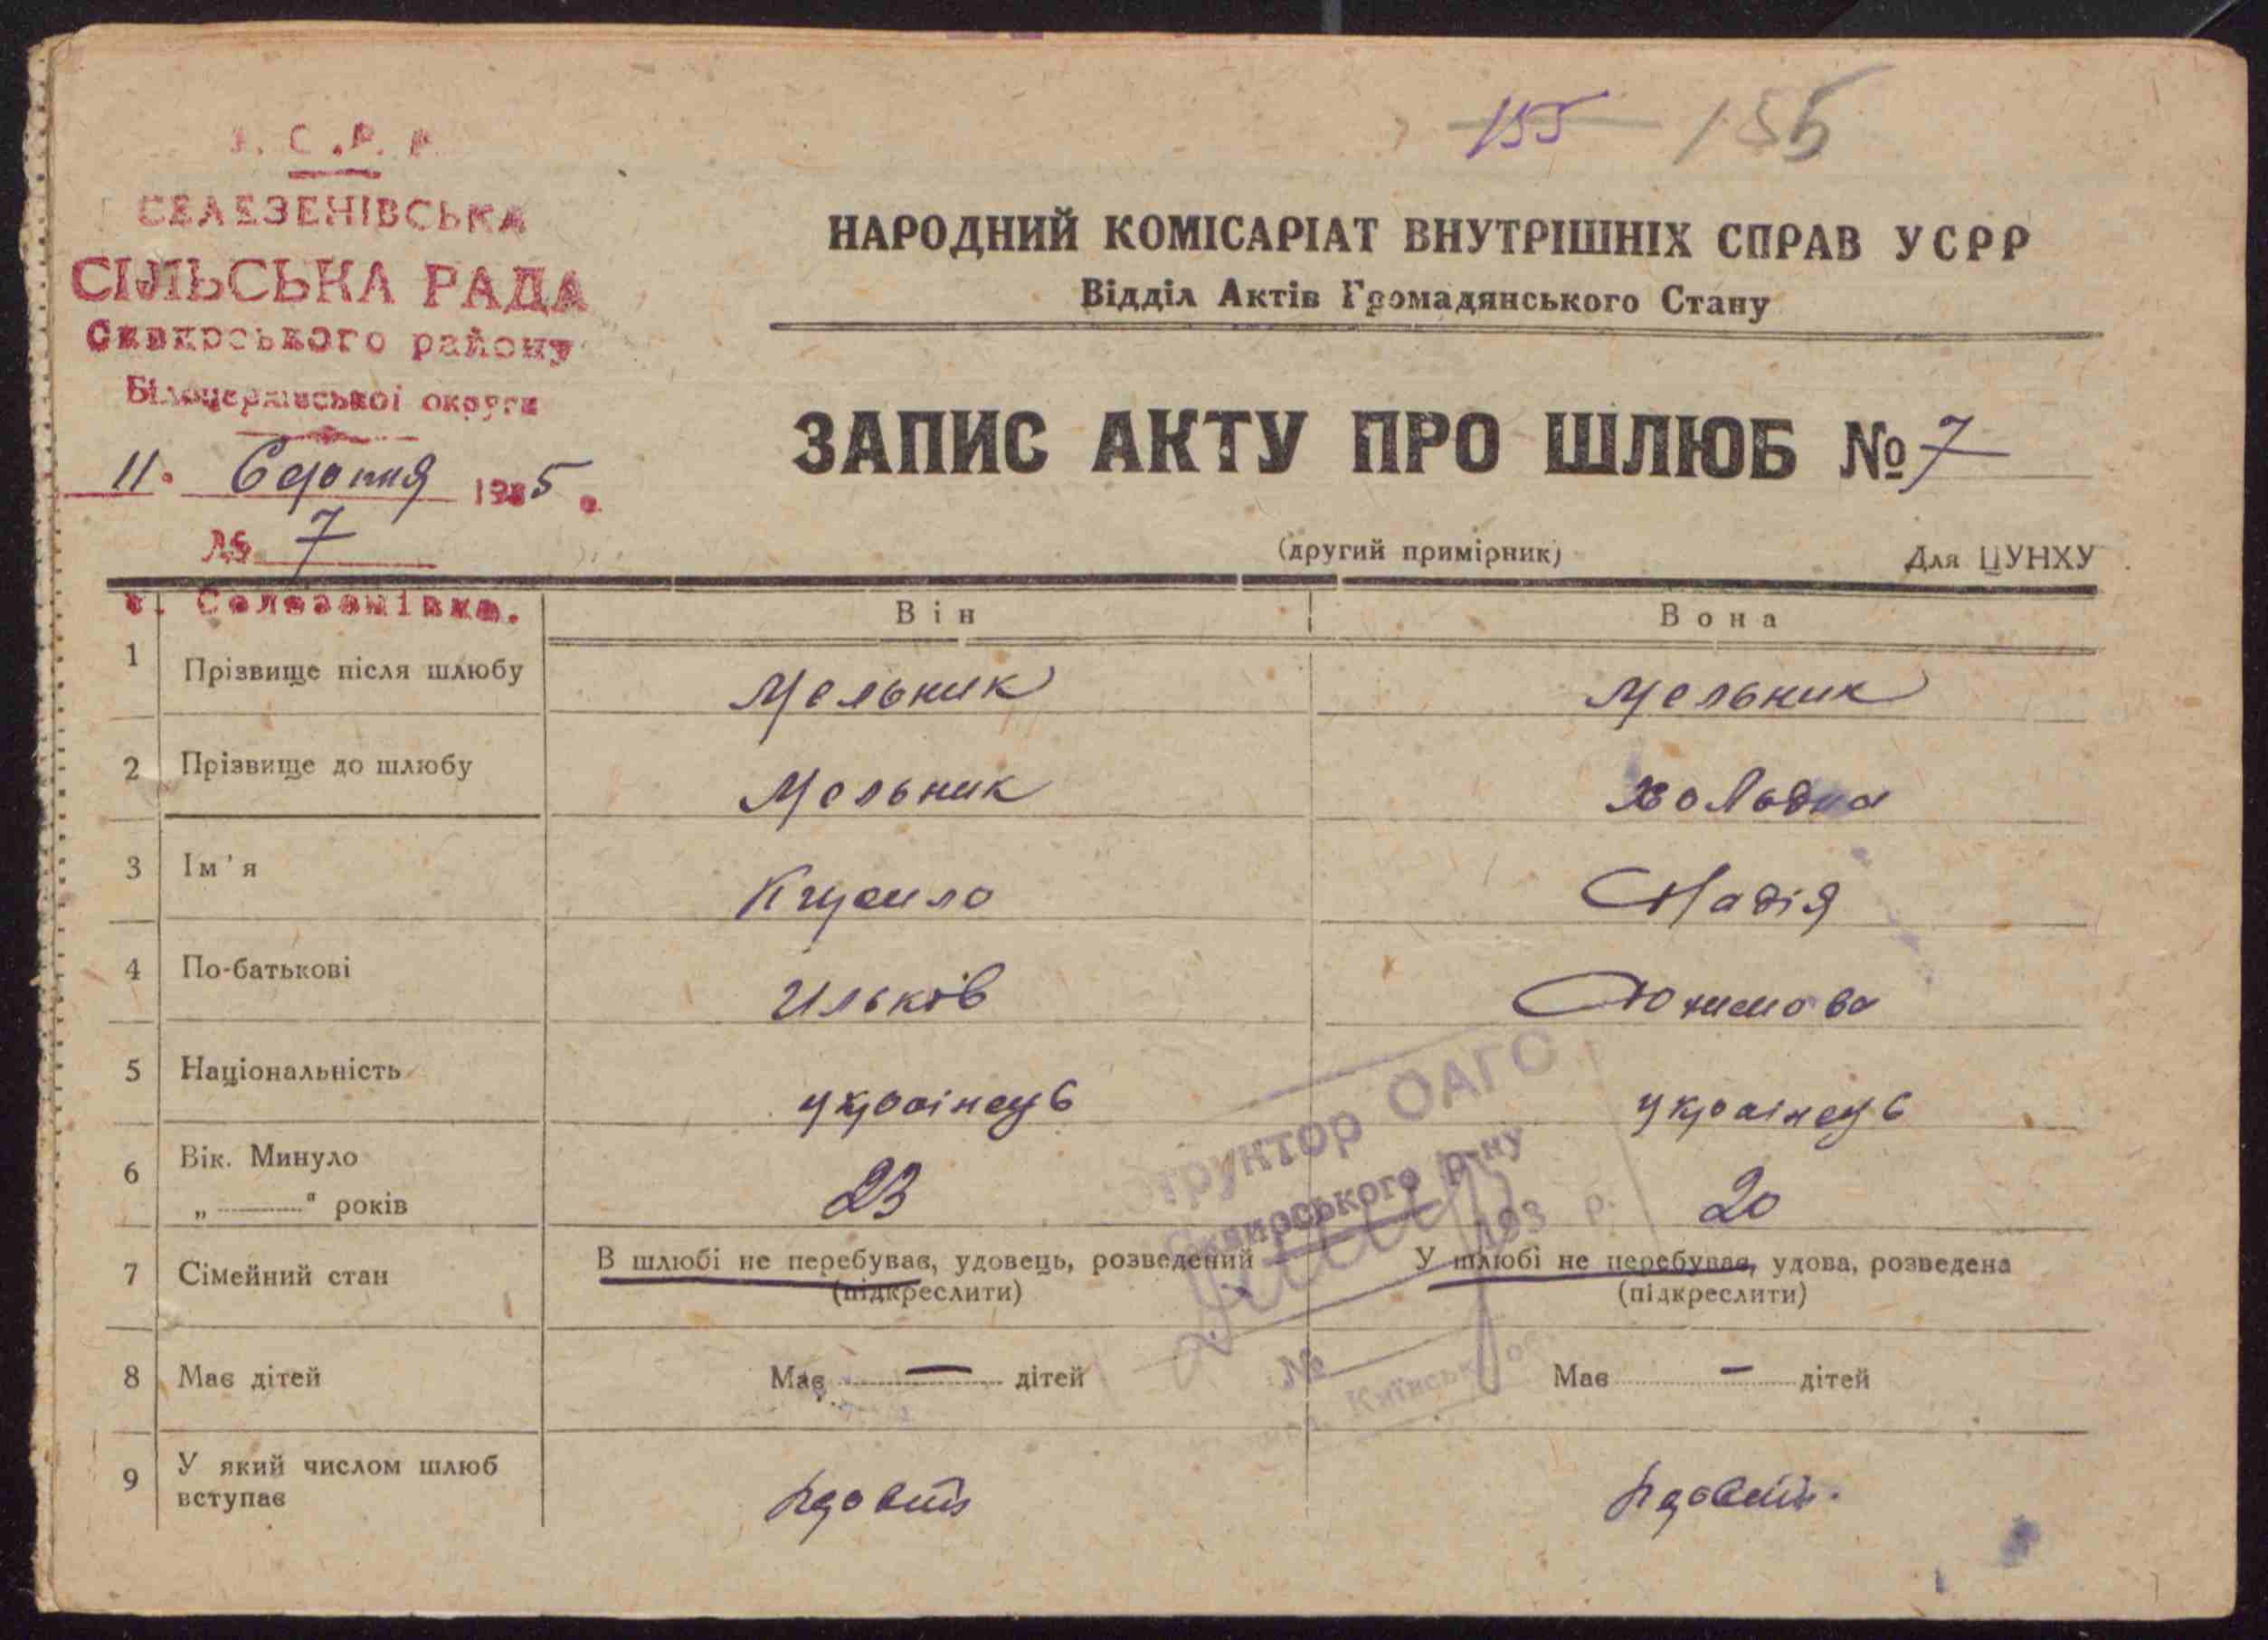 155 155
У. С. Р. Р.
СЕЛЕЗЕНІВСЬКА
СІЛЬСЬКА РАДА
Сквирського району
Білоцерківської округи
11. Серпня 1935 р.
№ 7
с. Селезенівка.
НАРОДНИЙ КОМІСАРІАТ ВНУТРІШНІХ СПРАВ УСРР
Відділ Актів Громадянського Стану
ЗАПИС АКТУ ПРО ШЛЮБ № 7
(другий примірник) Для ЦУНХУ
Він Вона
1 Прізвище після шлюбу Мельник Мельник
2 Прізвище до шлюбу Мельник
3 Ім'я Кирило Надія
4 По-батькові Ильків Юхимова
5 Національність українець українець
6 Вік. Минуло
„ " років 23 20
7 Сімейний стан В шлюбі не перебував, удовець, розведений У шлюбі не перебував, удова, розведена
(підкреслити) (підкреслити)
8 Має дітей Має — дітей Має — дітей
9 У який числом шлюб
вступає
структор ОАГС
Сквирського р-ну
193 р.
№
Київськ